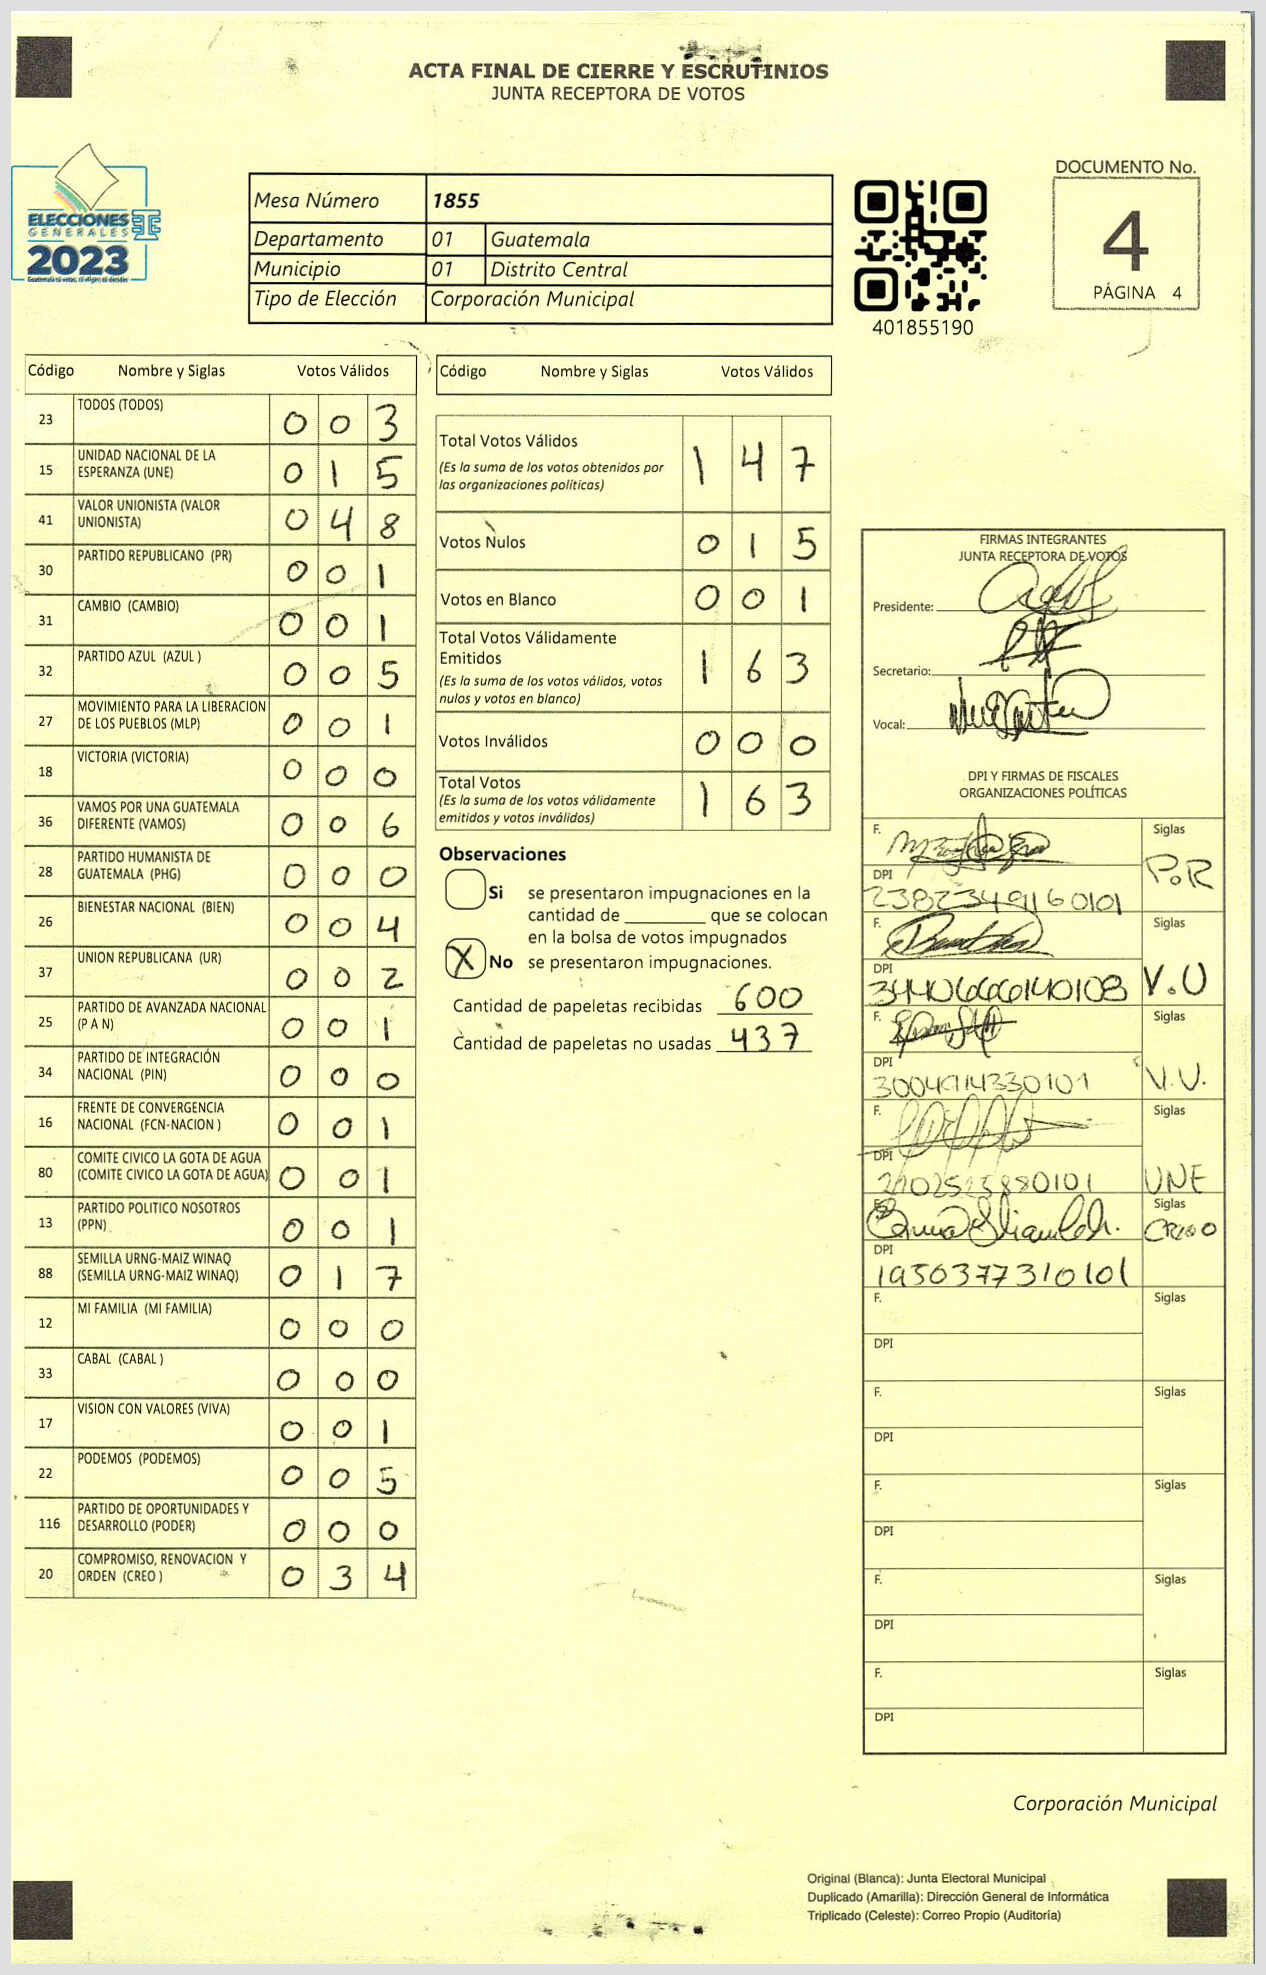 ACTA FINAL DE CIERRE Y ESCRUTINIOS
JUNTA RECEPTORA DE VOTOS
ELECCIONES
GENERALES
2023
Mesa Número 1855
Departamento 01 Guatemala
Municipio 01 Distrito Central
Tipo de Elección Corporación Municipal
401855190
DOCUMENTO No.
4
PÁGINA 4
Código Nombre y Siglas Votos Válidos
23 TODOS (TODOS) 0 0 3
15 UNIDAD NACIONAL DE LA
ESPERANZA (UNE) 0 1 5
41 VALOR UNIONISTA (VALOR
UNIONISTA) 0 4 8
30 PARTIDO REPUBLICANO (PR) 0 0 1
31 CAMBIO (CAMBIO) 0 0 1
32 PARTIDO AZUL (AZUL ) 0 0 5
27 MOVIMIENTO PARA LA LIBERACION
DE LOS PUEBLOS (MLP) 0 0 1
18 VICTORIA (VICTORIA) 0 0 0
36 VAMOS POR UNA GUATEMALA
DIFERENTE (VAMOS) 0 0 6
28 PARTIDO HUMANISTA DE
GUATEMALA (PHG) 0 0 0
26 BIENESTAR NACIONAL (BIEN) 0 0 4
37 UNION REPUBLICANA (UR) 0 0 2
25 PARTIDO DE AVANZADA NACIONAL
(P A N) 0 0 1
34 PARTIDO DE INTEGRACIÓN
NACIONAL (PIN) 0 0 0
16 FRENTE DE CONVERGENCIA
NACIONAL (FCN-NACION ) 0 0 1
80 COMITE CIVICO LA GOTA DE AGUA
(COMITE CIVICO LA GOTA DE AGUA) 0 0 1
13 PARTIDO POLITICO NOSOTROS
(PPN) 0 0 1
88 SEMILLA URNG-MAIZ WINAQ
(SEMILLA URNG-MAIZ WINAQ) 0 1 7
12 MI FAMILIA (MI FAMILIA) 0 0 0
33 CABAL (CABAL ) 0 0 0
17 VISION CON VALORES (VIVA) 0 0 1
22 PODEMOS (PODEMOS) 0 0 5
116 PARTIDO DE OPORTUNIDADES Y
DESARROLLO (PODER) 0 0 0
20 COMPROMISO, RENOVACION Y
ORDEN (CREO ) 0 3 4
Código Nombre y Siglas Votos Válidos
Total Votos Válidos 1 4 7
(Es la suma de los votos obtenidos por
las organizaciones políticas)
Votos Nulos 0 1 5
Votos en Blanco 0 0 1
Total Votos Válidamente
Emitidos 1 6 3
(Es la suma de los votos válidos, votos
nulos y votos en blanco)
Votos Inválidos 0 0 0
Total Votos 1 6 3
(Es la suma de los votos válidamente
emitidos y votos inválidos)
Observaciones
Si se presentaron impugnaciones en la
cantidad de ________ que se colocan
en la bolsa de votos impugnados
X No se presentaron impugnaciones.
Cantidad de papeletas recibidas 600
Cantidad de papeletas no usadas 437
FIRMAS INTEGRANTES
JUNTA RECEPTORA DE VOTOS
Presidente:
Secretario:
Vocal:
DPI Y FIRMAS DE FISCALES
ORGANIZACIONES POLÍTICAS
F. Siglas
P.R
DPI
2382349160101
F. Siglas
V.U
DPI
3440666140108
F. Siglas
V.U.
DPI
3004914330101
F. Siglas
UNE
DPI
F. Siglas
CREO
DPI
1950377310101
F. Siglas
DPI
F. Siglas
DPI
F. Siglas
DPI
F. Siglas
DPI
F. Siglas
DPI
Corporación Municipal
Original (Blanca): Junta Electoral Municipal
Duplicado (Amarilla): Dirección General de Informática
Triplicado (Celeste): Correo Propio (Auditoría)